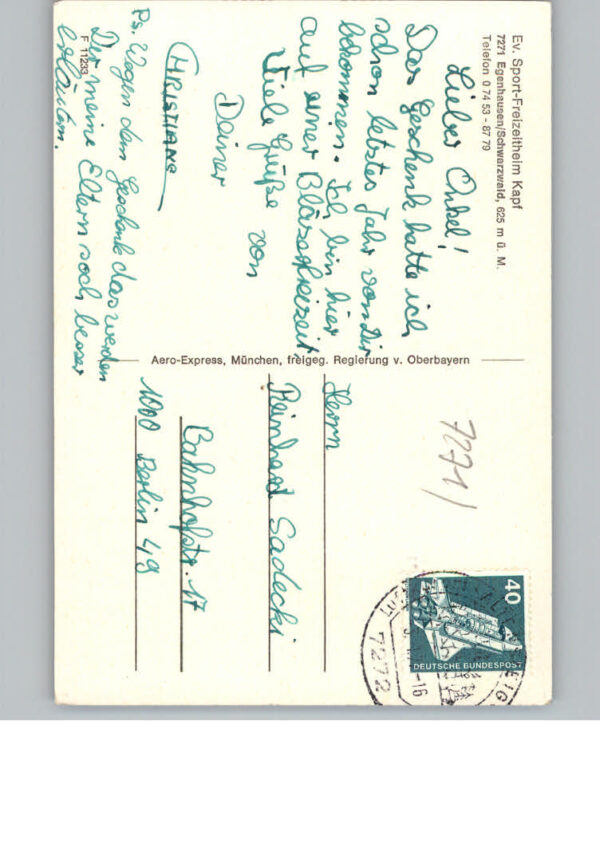 Ev. Sport-Freizeitheim Kapf
7271 Egenhausen/Schwarzwald, 625 m ü. M.
Telefon 0 74 53 - 87 79
Lieber Onkel!
Das Geschenk hatte ich
schon letztes Jahr von Dir
bekommen. Ich bin hier
auf einer Bläserfreizeit
Viele Grüße von
Deiner
CHRISTIANE
Ps. Wegen dem Geschenk das werden
Dir meine Eltern noch besser
erläutern.
F 11233
Aero-Express, München, freigeg. Regierung v. Oberbayern
7271/
40
DEUTSCHE BUNDESPOST
7272
-16
Herrn
Reinhard Sadecki
Bahnhofstr. 17
1000 Berlin 49